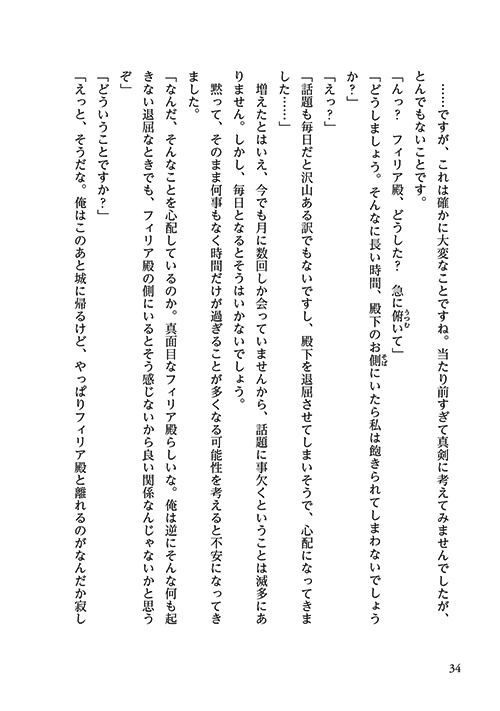 ……ですが、これは確かに大変なことですね。当たり前すぎて真剣に考えてみませんでしたが、
とんでもないことです。
「んっ？　フィリア殿、どうした？　急に俯いて」
「どうしましょう。そんなに長い時間、殿下のお側にいたら私は飽きられてしまわないでしょう
か？」
「えっ？」
「話題も毎日だと沢山ある訳でもないですし、殿下を退屈させてしまいそうで、心配になってきま
した……」
増えたとはいえ、今でも月に数回しか会っていませんから、話題に事欠くということは滅多にあ
りません。しかし、毎日となるとそうはいかないでしょう。
黙って、そのまま何事もなく時間だけが過ぎることが多くなる可能性を考えると不安になってき
ました。
「なんだ、そんなことを心配しているのか。真面目なフィリア殿らしいな。俺は逆にそんな何も起
きない退屈なときでも、フィリア殿の側にいるとそう感じないから良い関係なんじゃないかと思う
ぞ」
「どういうことですか？」
「えっと、そうだな。俺はこのあと城に帰るけど、やっぱりフィリア殿と離れるのがなんだか寂し
うつむ
そば
34